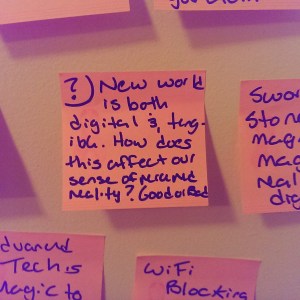 ?) New world
is both
digital & tang-
ible. How does
this affect our
sense of perceived
reality? Good or Bad
Swor
Stone
magi
mag
real
dig
dvanced
Tech is
agic to
WiFi
Blocking